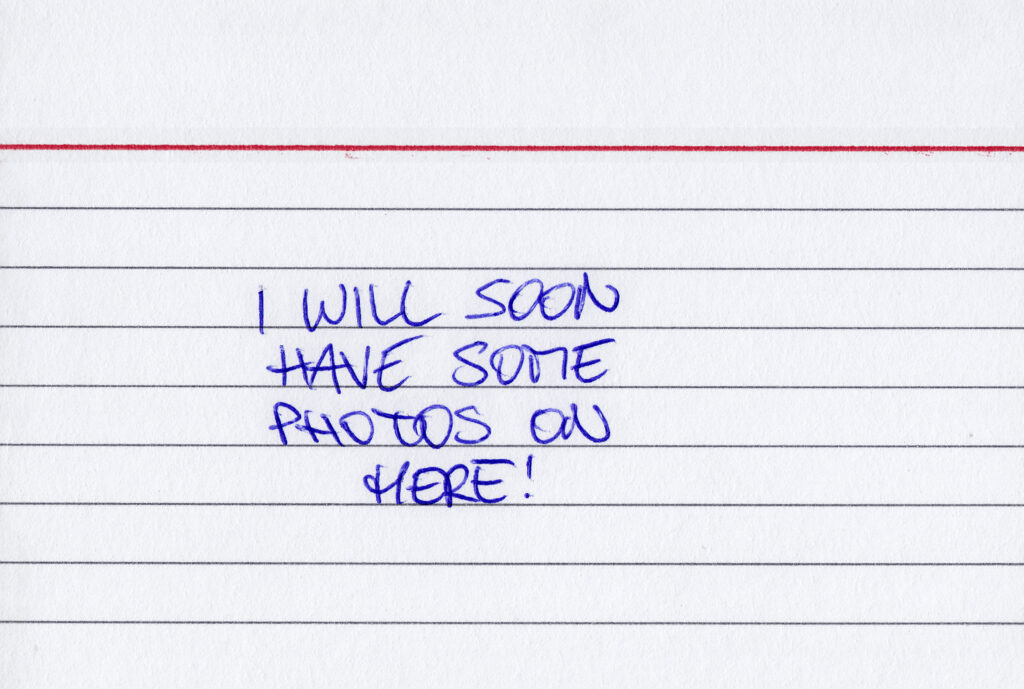 I WILL SOON
HAVE SOME
PHOTOS ON
HERE!